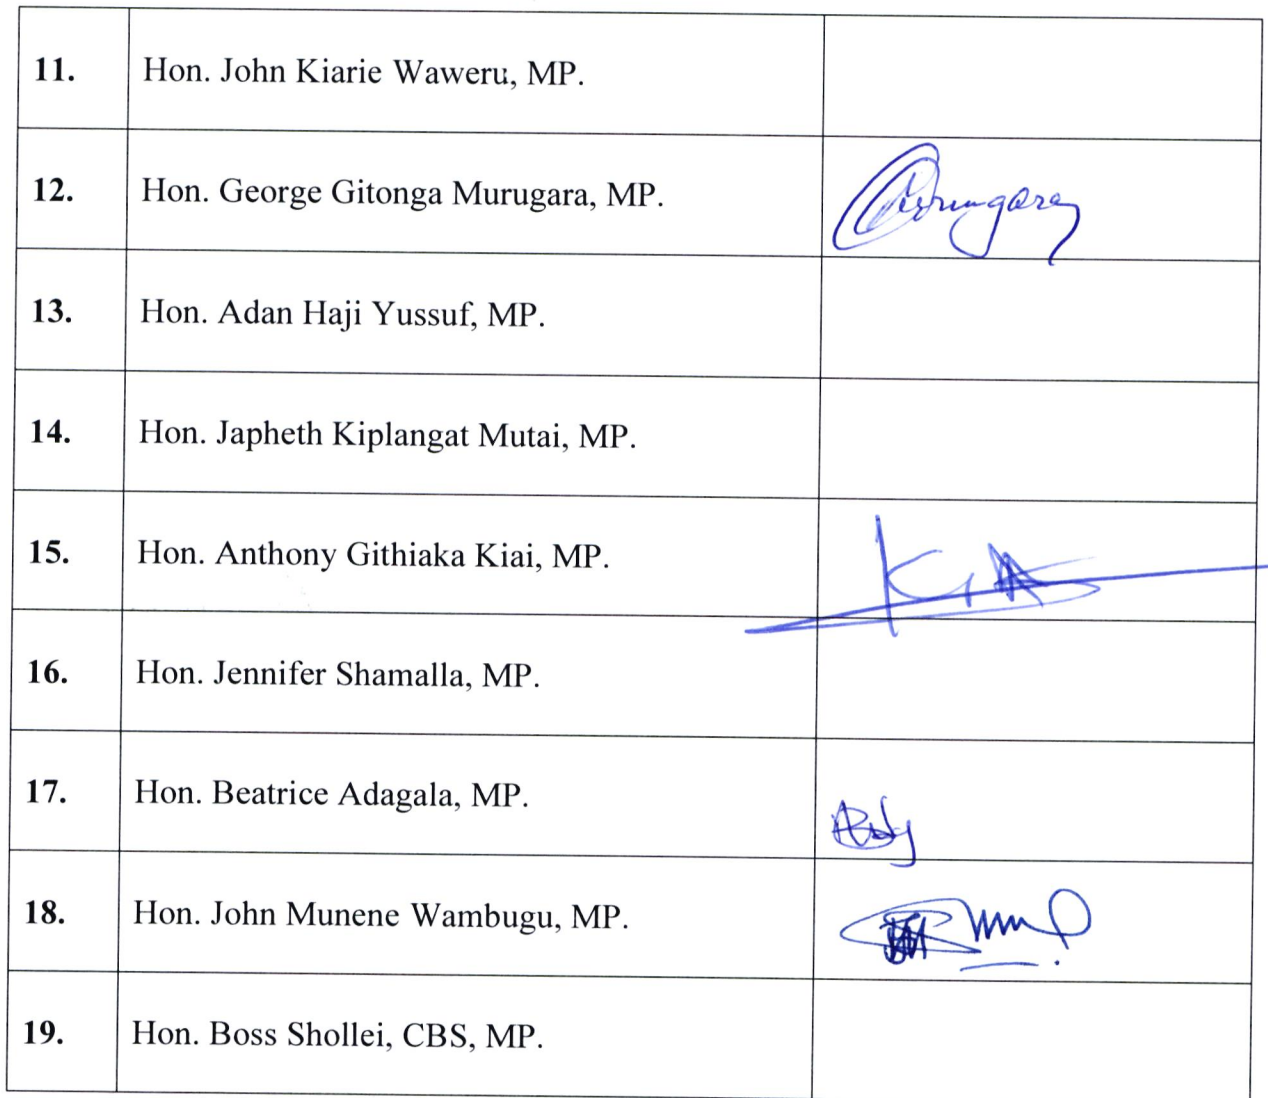 11. Hon. John Kiarie Waweru, MP.
12. Hon. George Gitonga Murugara, MP.
13. Hon. Adan Haji Yussuf, MP.
14. Hon. Japheth Kiplangat Mutai, MP.
15. Hon. Anthony Githiaka Kiai, MP.
16. Hon. Jennifer Shamalla, MP.
17. Hon. Beatrice Adagala, MP.
18. Hon. John Munene Wambugu, MP.
19. Hon. Boss Shollei, CBS, MP.